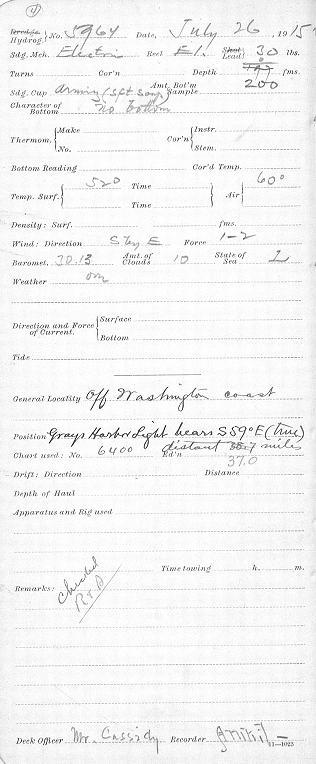 Dredge
Hydrog. No. 5964 Date, July 26, 1915
Sdg. Mch. Electric Reel El. Shot Lead 30 lbs.
Turns Cor'n Depth fms.
200
Sdg. Cup arming Amt. Bot'm Sample
Character of Bottom no bottom
Thermom. Make No. Cor'n Instr. Stem.
Bottom Reading Cor'd Temp.
Temp. Surf. 520 Time Time Air 60°
Density: Surf. fms.
Wind: Direction S by E Force 1-2
Baromet. 30.13 Amt. of Clouds 10 State of Sea 1
Weather om
Direction and Force of Current. Surface Bottom
Tide
General Locality Off Washington coast
Position Grays Harbor Light bears S59°E (true)
Chart used: No. 6400 Ed'n distant miles
37.0
Drift: Direction Distance
Depth of Haul
Apparatus and Rig used
Time towing h. m.
Remarks: Checked
Deck Officer Mr. Cassidy Recorder
11—1023